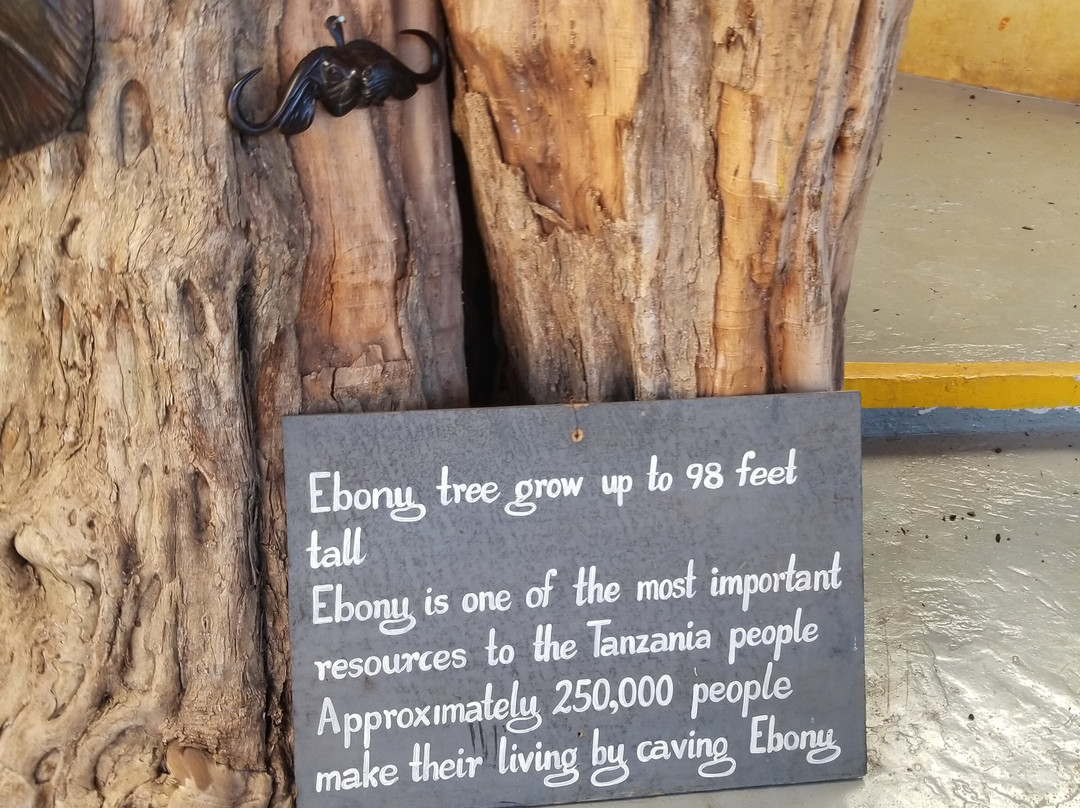 Ebony tree grow up to 98 feet
tall
Ebony is one of the most important
resources to the Tanzania people
Approximately 250,000 people
make their living by caving Ebony